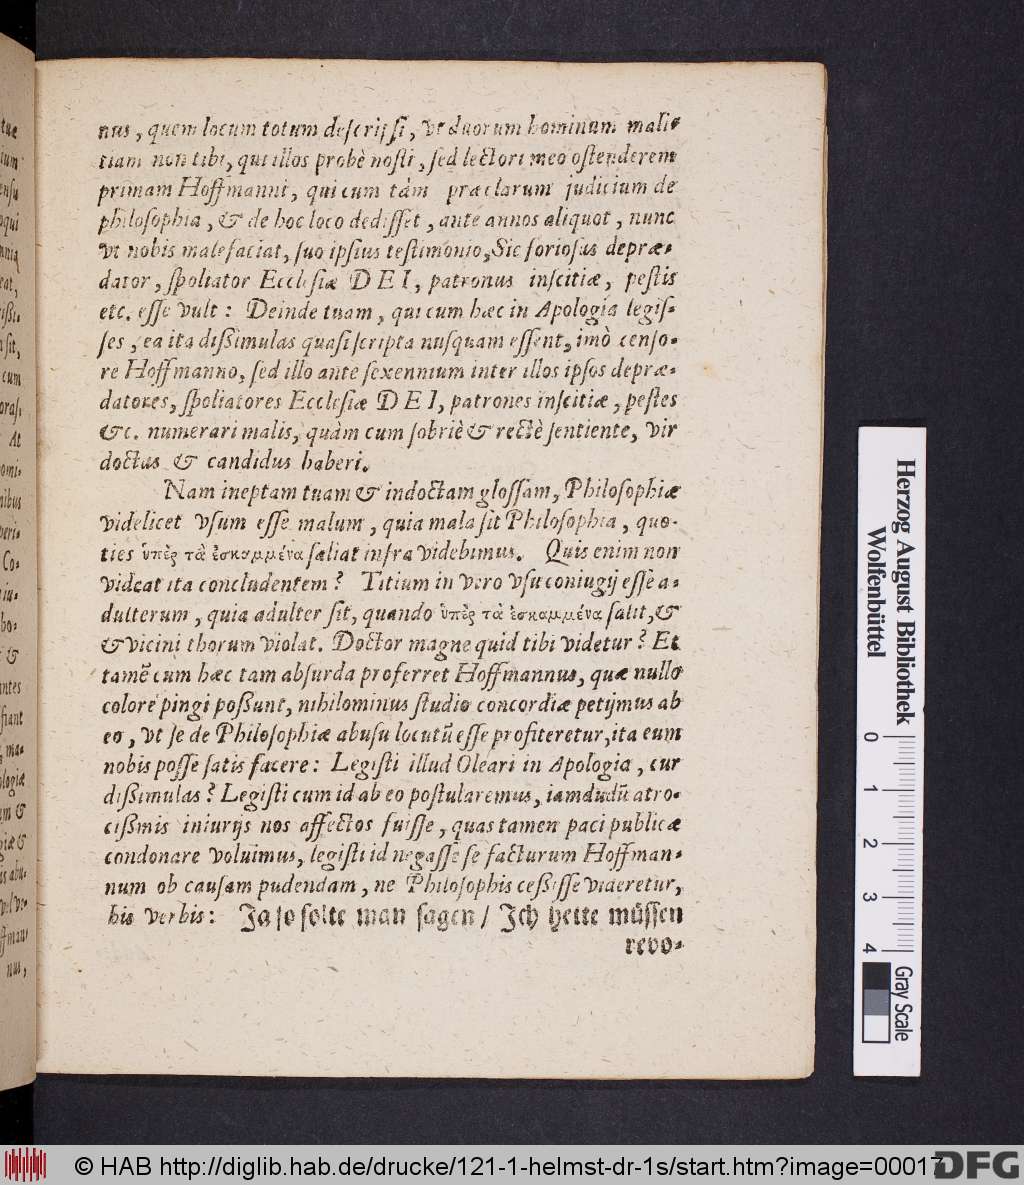 nus, quem locum totum descripsi, vt duorum hominum mali-
tiam non tibi, qui illos probè nosti, sed lectori meo ostenderem
primam Hoffmanni, qui cum tàm præclarum judicium de
philosophia, & de hoc loco dedisset, ante annos aliquot, nunc
vt nobis malefaciat, suo ipsius testimonio, Sic soriosus depræ-
dator, spoliator Ecclesiæ DEI, patronus inscitiæ, pestis
etc. esse vult: Deinde tuam, qui cum hæc in Apologia legis-
ses, ea ita dißimulas quasi scripta nusquam essent, imò censo-
re Hoffmanno, sed illo ante sexennium inter illos ipsos depræ-
datores, spoliatores Ecclesiæ DEI, patrones inscitiæ, pestes
&c. numerari malis, quàm cum sobriè & rectè sentiente, vir
doctus & candidus haberi.
Nam ineptam tuam & indoctam glossam, Philosophiæ
videlicet vsum esse malum, quia mala sit Philosophia, quo-
ties ὑπὲρ τὰ ἐσκαμμένα saliat infra videbimus. Quis enim non
videat ita concludentem? Titium in vero vsu coniugij esse a-
dulterum, quia adulter sit, quando ὑπὲρ τὰ ἐσκαμμένα salit, &
& vicini thorum violat. Doctor magne quid tibi videtur? Et
tamē cum hæc tam absurda proferret Hoffmannus, quæ nullo
colore pingi poßunt, nihilominus studio concordiæ petijmus ab
eo, vt se de Philosophiæ abusu locutū esse profiteretur, ita eum
nobis posse satis facere: Legisti illud Oleari in Apologia, cur
dißimulas? Legisti cum id ab eo postularemus, iamdudū atro-
cißmis iniurijs nos affectos fuisse, quas tamen paci publicæ
condonare voluimus, legisti id negasse se facturum Hoffman-
num ob causam pudendam, ne Philosophis ceßisse videretur,
his verbis: Ja so solte man sagen / Ich hette müssen
revo-
Herzog August Bibliothek
Wolfenbüttel
0 1 2 3 4
Gray Scale
© HAB http://diglib.hab.de/drucke/121-1-helmst-dr-1s/start.htm?image=00017
DFG